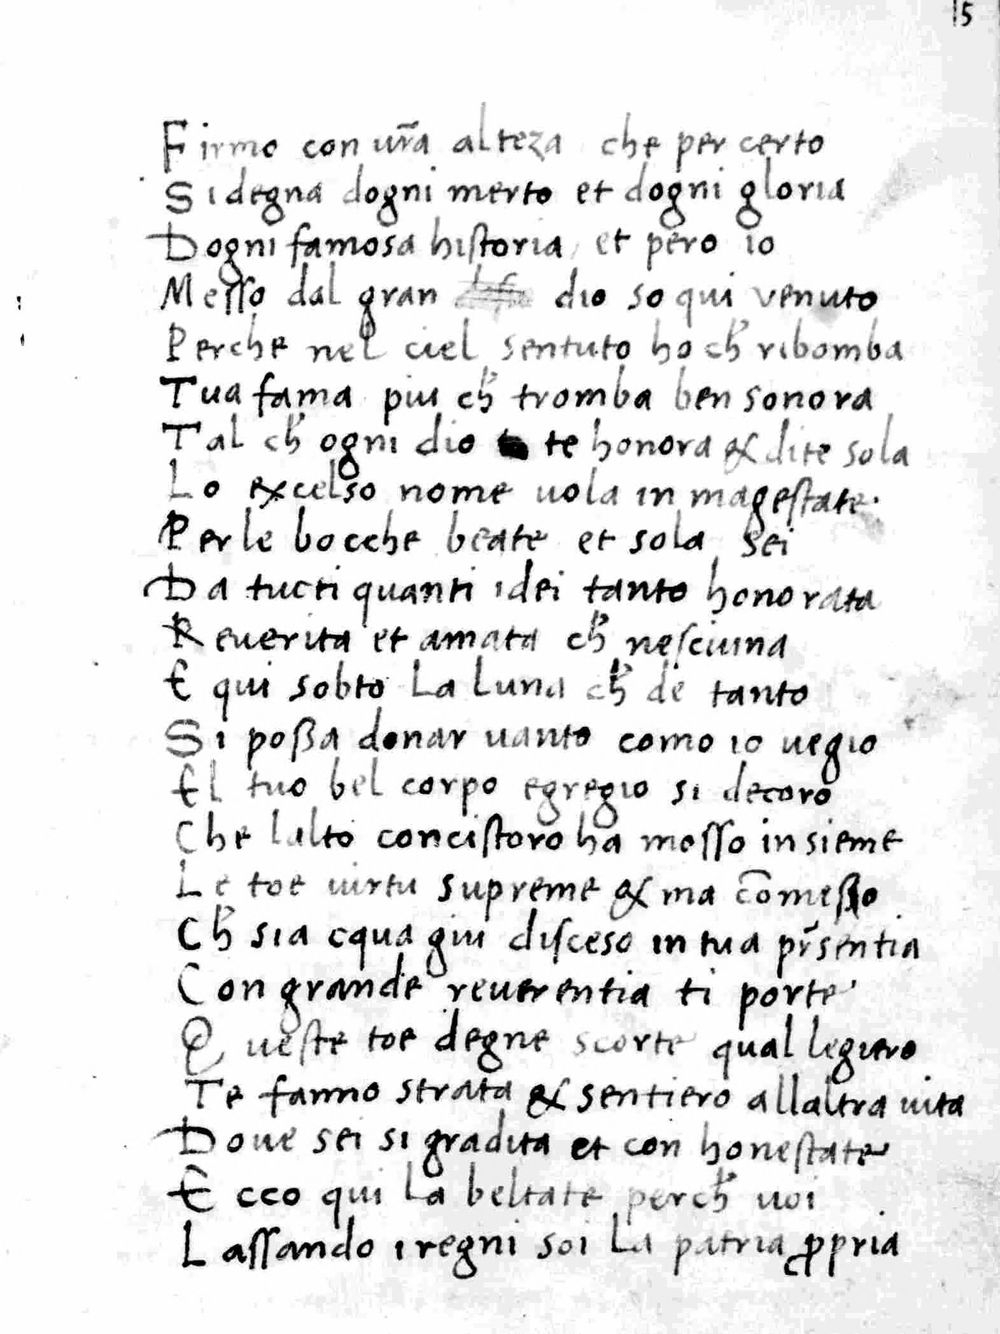 15
Firmo con ur̃a alteza che per certo
Si degna dogni merto et dogni gloria
Dogni famosa hiſtoria et pero io
Meſſo dal gran dio so qui venuto
Perche nel ciel sentuto ho ch̃ ribomba
Tua fama piu ch̃ tromba ben sonora
Tal ch̃ ogni dio te honora & di te sola
Lo excelso nome uola in mageſtate
Per le bocche beate et sola sei
Da tucti quanti i dei tanto honorata
Reuerita et amata ch̃ neſciuna
E qui sobto La Luna ch̃ de tanto
Si poßa donar uanto como io uegio
El tuo bel corpo egregio si decoro
Che lalto conciſtoro ha moſſo insieme
Le toe uirtu supreme & ma cõmeſſo
Ch̃ sia cqua giu diſceso in tua pr̃sentia
Con grande reuerentia ti porte
Queſte toe degne scorte qual legiero
Te fanno strata & sentiero allaltra uita
Doue sei si gradita et con honeſtate
Ecco qui La beltate perch̃ uoi
Laſſando i regni soi La patria ꝓpria